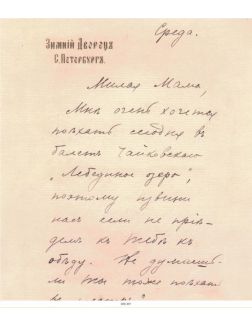 Среда.
Зимній Дворецъ
С. Петербургъ.
Милая Мама,
Мнѣ очень хочется
поѣхать сегодня въ
балетъ Чайковскаго
„Лебединое озеро",
поэтому извини
насъ если не пріѣ-
демъ къ Тебѣ къ
обѣду. Не думаешь
ли Ты тоже поѣхать